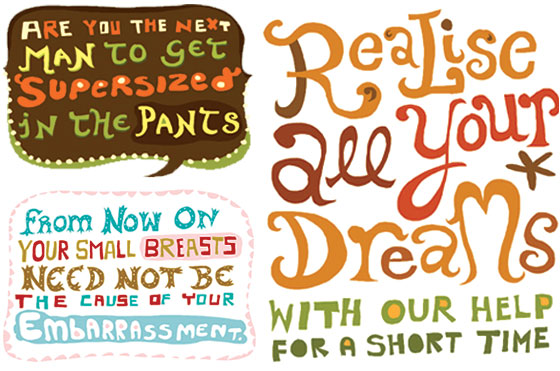 ARE YOU THE NEXT
MAN TO GET
'SUPERSIZED'
iN THE PANTS
FROM NOW ON
YOUR SMALL BREASTS
NEED NOT BE
THE CAUSE OF YOUR
EMBARRASSMENT.
ReaLise
all your
DreaMs
WITH OUR HELP
FOR A SHORT TIME